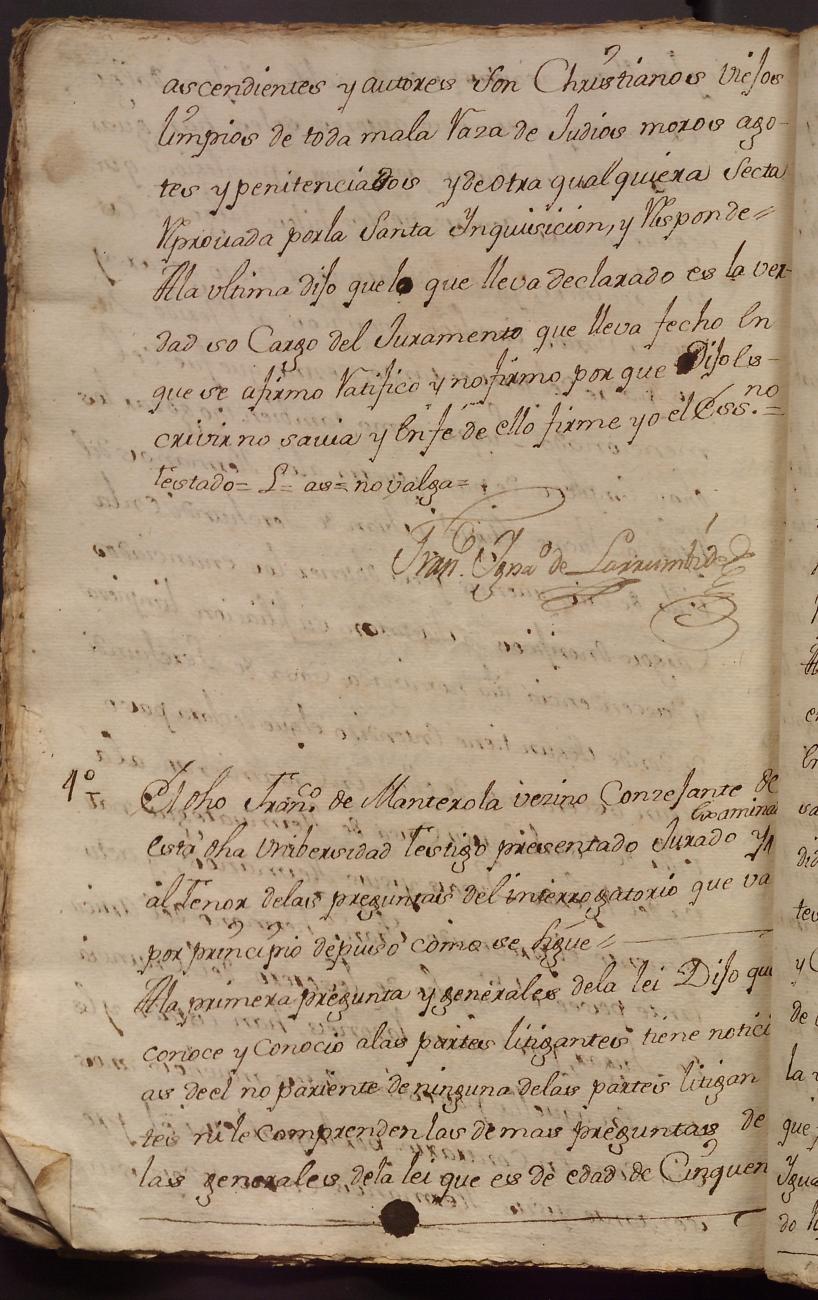 ascendientes y autores son Christianos viejos
limpios de toda mala Raza de Judios moros ago-
tes y penitenciados y de otra qualquiera Secta
Reprovada por la Santa Ynquisicion, y Responde=
A la ultima dijo que lo que lleva declarado es la ver-
dad so Cargo del Juramento que lleva fecho En
que se afirmo Ratifico y no firmo por que Dijo Es-
crivir no savia y En fe de ello firme yo el Ess.no=
Testado= L= as= no valga=
Fran.co Ygna.o de Larrumbide
4º El dho Fran.co de Manterola vezino Conzejante de
esta dha Vnibersidad Testigo presentado Jurado y Examina
al Tenor de las preguntas del interrogatorio que va
por principio depuso como se sigue=
A la primera pregunta y generales de la lei Dijo que
conoce y conocio a las partes litigantes tiene notici
as de el no pariente de ninguna de las partes litigan
tes ni le comprenden las demas preguntas de
las generales de la lei que es de edad de Cinquen